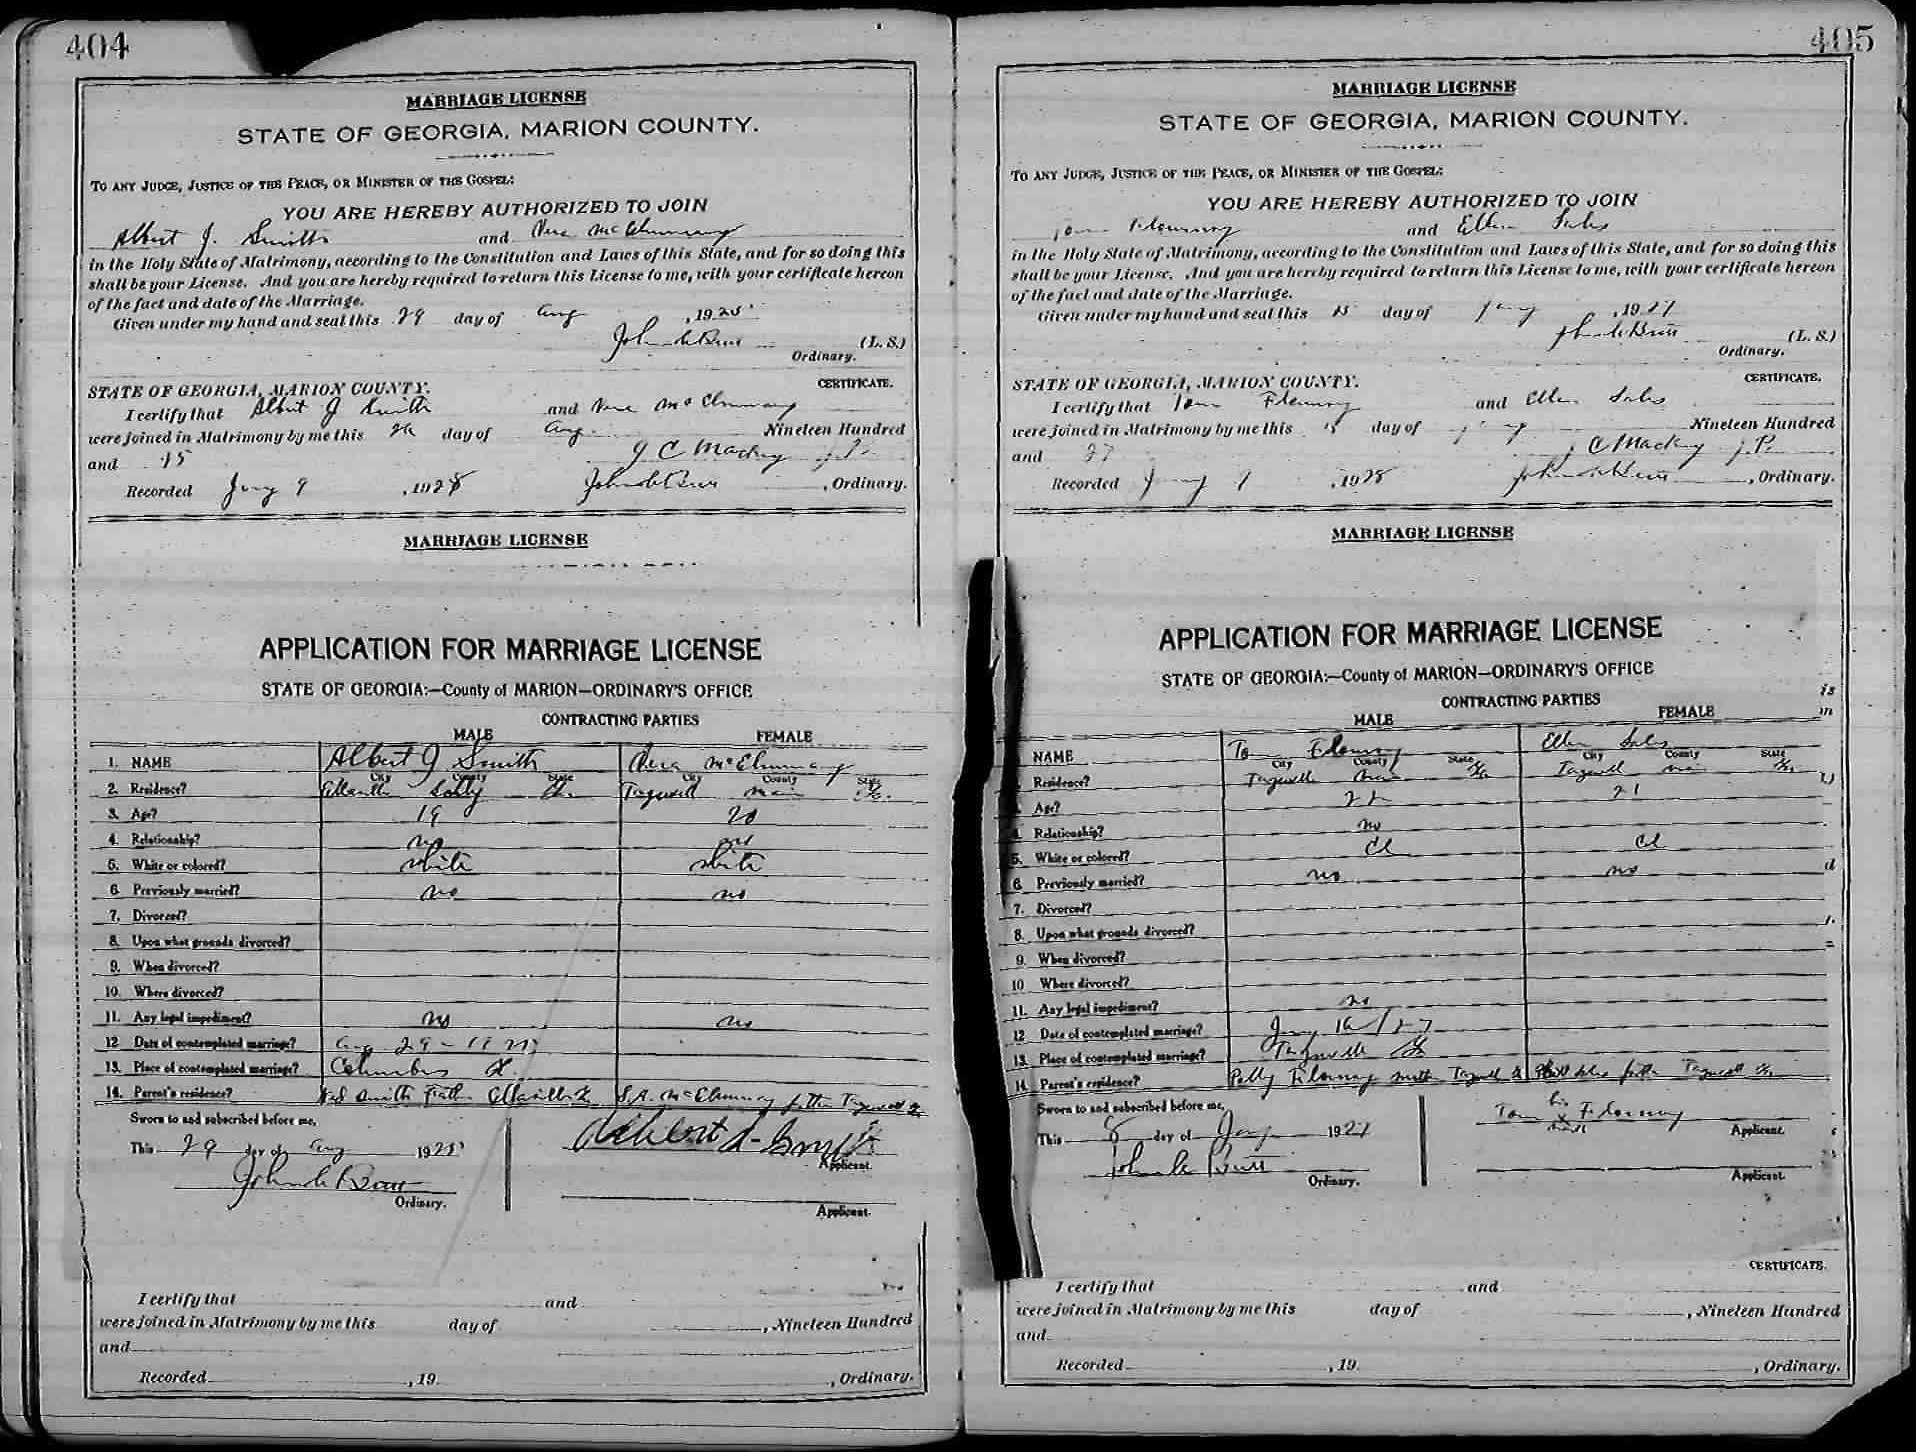 404
MARRIAGE LICENSE
STATE OF GEORGIA, MARION COUNTY.
TO ANY JUDGE, JUSTICE OF THE PEACE, OR MINISTER OF THE GOSPEL:
YOU ARE HEREBY AUTHORIZED TO JOIN
Albert J. Smith and Vera McElmurray
in the Holy State of Matrimony, according to the Constitution and Laws of this State, and for so doing this
shall be your License. And you are hereby required to return this License to me, with your certificate hereon
of the fact and date of the Marriage.
Given under my hand and seal this 29 day of Aug , 1925
(L. S.)
Ordinary.
CERTIFICATE.
STATE OF GEORGIA, MARION COUNTY.
I certify that Albert J Smith and Vera McElmurray
were joined in Matrimony by me this day of Aug. Nineteen Hundred
and J C Mackey J.P.
Recorded Jany 9 , 1928 , Ordinary.
MARRIAGE LICENSE
APPLICATION FOR MARRIAGE LICENSE
STATE OF GEORGIA:—County of MARION—ORDINARY'S OFFICE
CONTRACTING PARTIES
MALE FEMALE
1. NAME Albert J Smith Vera McElmurray
City County State City County State
2. Residence? Ellaville Ga. Tazewell Ga.
3. Age? 19 20
4. Relationship? no no
5. White or colored? white white
6. Previously married? no no
7. Divorced?
8. Upon what grounds divorced?
9. When divorced?
10. Where divorced?
11. Any legal impediment? no no
12 Date of contemplated marriage? Aug 29 - 19
13. Place of contemplated marriage? Columbus
14. Parent's residence? Smith Father Ellaville Ga McElmurray father Tazewell Ga
Sworn to and subscribed before me,
This 29 day of Aug 1925
Applicant.
Ordinary.
Applicant.
I certify that and
were joined in Matrimony by me this day of , Nineteen Hundred
and
Recorded , 19 , Ordinary.
405
MARRIAGE LICENSE
STATE OF GEORGIA, MARION COUNTY.
TO ANY JUDGE, JUSTICE OF THE PEACE, OR MINISTER OF THE GOSPEL:
YOU ARE HEREBY AUTHORIZED TO JOIN
Tom Flournoy and Ellen Sales
in the Holy State of Matrimony, according to the Constitution and Laws of this State, and for so doing this
shall be your License. And you are hereby required to return this License to me, with your certificate hereon
of the fact and date of the Marriage.
Given under my hand and seal this 15 day of Jany , 1927
(L. S.)
Ordinary.
CERTIFICATE.
STATE OF GEORGIA, MARION COUNTY.
I certify that Tom Flournoy and Ellen Sales
were joined in Matrimony by me this 15 day of Jany Nineteen Hundred
and 27 J C Mackey J.P.
Recorded Jany 9 , 1928 , Ordinary.
MARRIAGE LICENSE
APPLICATION FOR MARRIAGE LICENSE
STATE OF GEORGIA:—County of MARION—ORDINARY'S OFFICE
CONTRACTING PARTIES
MALE FEMALE
NAME Tom Flournoy Ellen Sales
City County State City County State
Residence? Tazewell Ga Tazewell Ga
Age? 22 21
4. Relationship? no
5. White or colored? Cl Cl
6. Previously married? no no
7. Divorced?
8. Upon what grounds divorced?
9. When divorced?
10 Where divorced?
11. Any legal impediment? no
12 Date of contemplated marriage? Jany
13. Place of contemplated marriage? Tazewell Ga
14. Parent's residence? Polly Flournoy mother Tazewell Ga Sales father Tazewell Ga
Sworn to and subscribed before me,
This 8 day of Jany 1927
Tom his x mark Flournoy
Applicant.
Ordinary.
Applicant.
CERTIFICATE.
I certify that and
were joined in Matrimony by me this day of , Nineteen Hundred
and
Recorded , 19 , Ordinary.